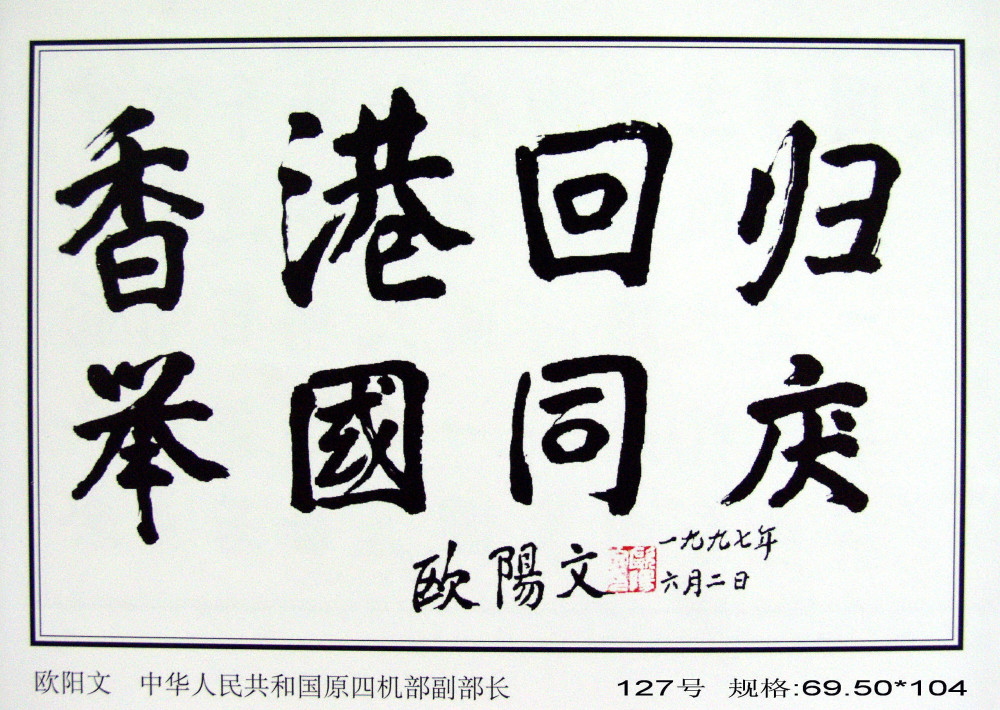 香港回归
举國同庆
欧陽文
一九九七年
六月二日
欧阳文 中华人民共和国原四机部副部长
127号 规格:69.50*104